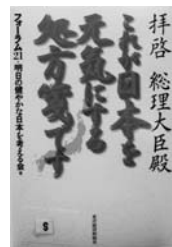 拝啓 総理大臣殿
これが日本を
元気にする
処方箋です
フォーラム21・明日の健やかな日本を考える会・
S